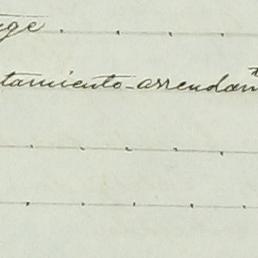 uge
tamiento - arrendam